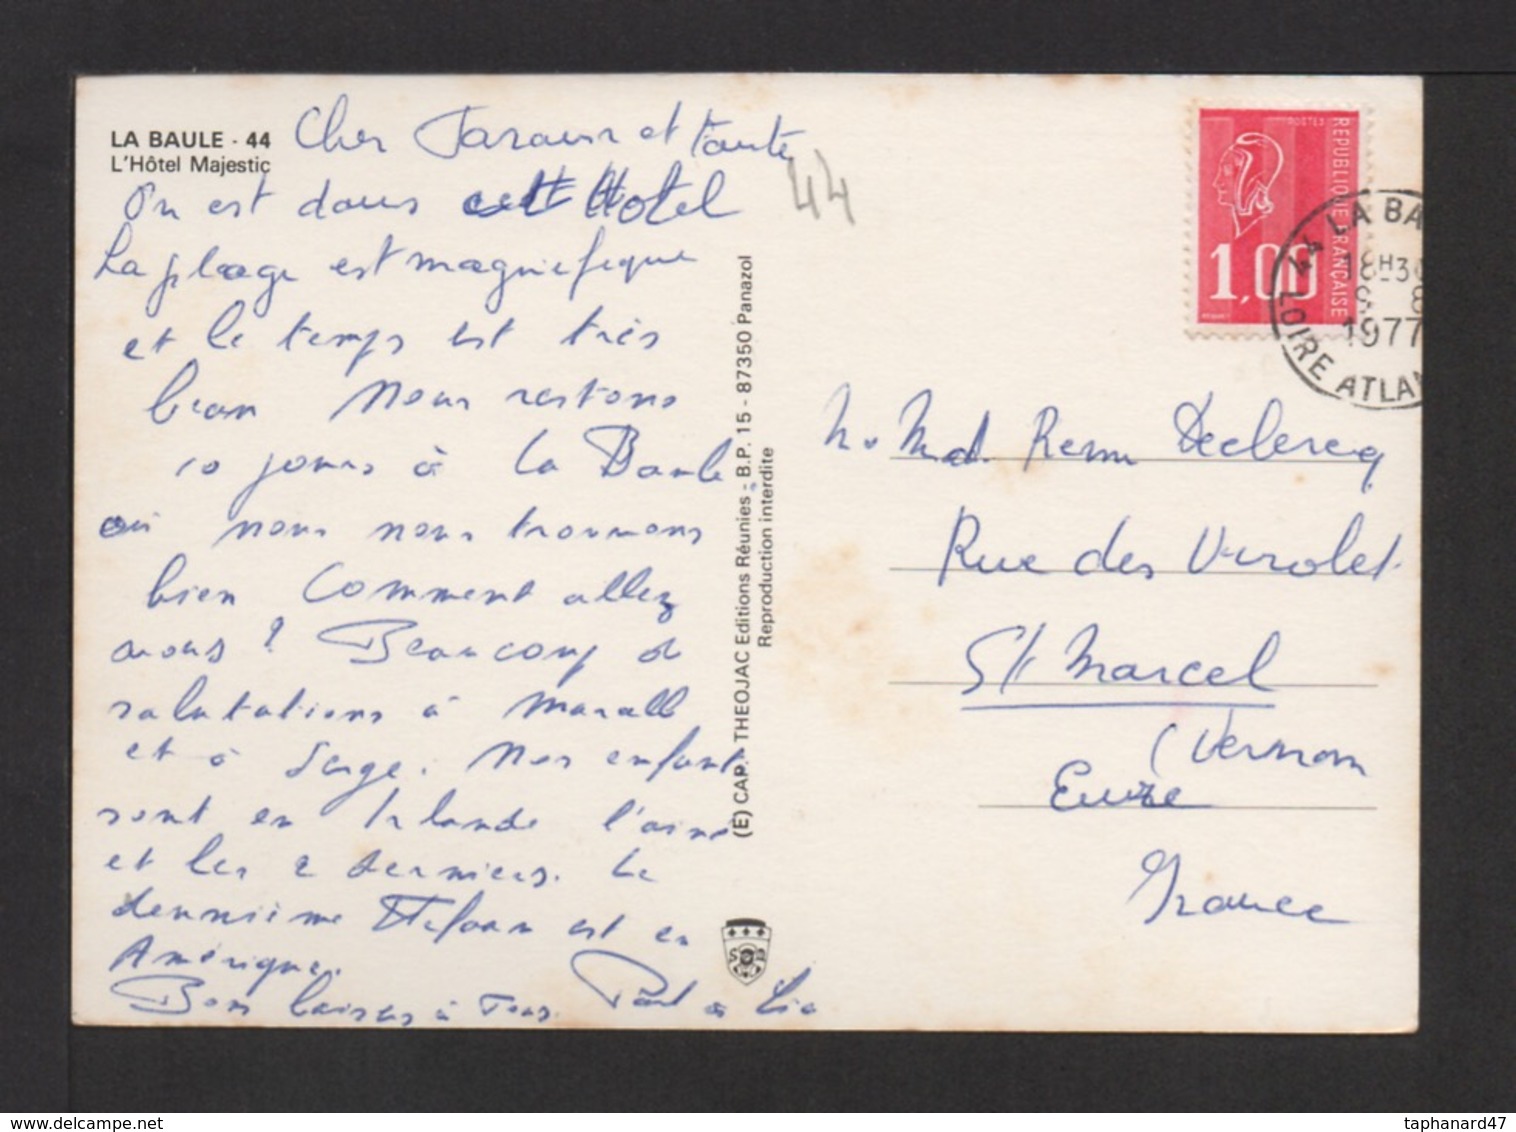 LA BAULE - 44
L'Hôtel Majestic
Cher et tante
On est dans cet Hotel
La plage est magnifique
et le temps est très
beau Nous restons
10 jours à La Baule
où nous nous trouvons
bien Comment allez
vous ? Beaucoup de
salutations à
et à Serge. Nos enfants
sont en Irlande l'ainé
et les 2 derniers. Le
deuxième est en
Amérique.
Bons baisers à Tous. Paul et
44
(E) CAP. - THEOJAC Editions Réunies - B.P. 15 - 87350 Panazol
Reproduction interdite
POSTES
REPUBLIQUE FRANÇAISE
1,00
44 LA BA
18H30
1977
LOIRE ATLAN
M. Md. Declercq
Rue des Virolet
St Marcel
(Vernon
Eure
France
taphanard47